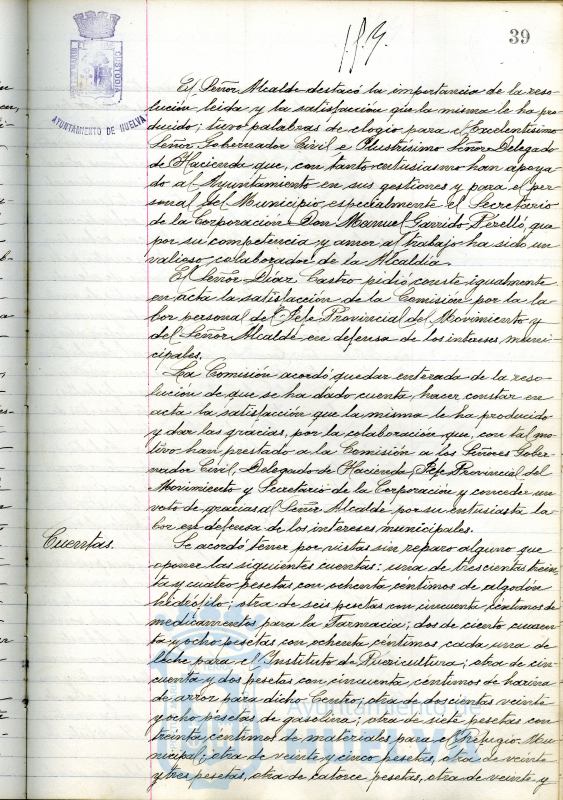 39
PORTUS MARIS ET TERRAE CUSTODIA
AYUNTAMIENTO DE HUELVA
El Señor Alcalde destacó la importancia de la reso-
lución leida y la satisfacción que la misma le ha pro-
ducido; tuvo palabras de elogio para el Excelentísimo
Señor Gobernador Civil e Ilustrísimo Señor Delegado
de Hacienda que, con tanto entusiasmo han apoya-
do al Ayuntamiento en sus gestiones y para el per-
sonal del Municipio especialmente el Secretario
de la Corporación Don Manuel Garrido Perelló, que
por su competencia y amor al trabajo ha sido un
valioso colaborador de la Alcaldía.
El Señor Díaz Castro pidió conste igualmente
en acta la satisfacción de la Comisión por la la-
bor personal del Jefe Provincial del Movimiento y
del Señor Alcalde en defensa de los intereses muni-
cipales.
La Comisión acordó quedar enterada de la reso-
lución de que se ha dado cuenta, hacer constar en
acta la satisfacción que la misma le ha producido
y dar las gracias, por la colaboración que, con tal mo-
tivo han prestado a la Comisión a los Señores Gober-
nador Civil, Delegado de Hacienda Jefe Provincial del
Movimiento y Secretario de la Corporación y conceder un
voto de gracias al Señor Alcalde por su entusiasta la-
bor en defensa de los intereses municipales.
Cuentas.
Se acordó tener por vistas sin reparo alguno que
oponer las siguientes cuentas: una de trescientas trein-
ta y cuatro pesetas con ochenta céntimos de algodón
hidrófilo; otra de seis pesetas con cincuenta céntimos de
medicamentos para la Farmacia; dos de ciento cuaren-
ta y ocho pesetas con ochenta céntimos, cada una de
leche para el Instituto de Puericultura; otra de cin-
cuenta y dos pesetas con cincuenta céntimos de harina
de arroz para dicho Centro; otra de doscientas veinte
y ocho pesetas de gasolina; otra de siete pesetas con
treinta céntimos de materiales para el Refugio Mu-
nicipal; otra de veinte y cinco pesetas, otra de veinte
y tres pesetas, otra de catorce pesetas, otra de veinte y
Ayuntamiento de
HUELVA